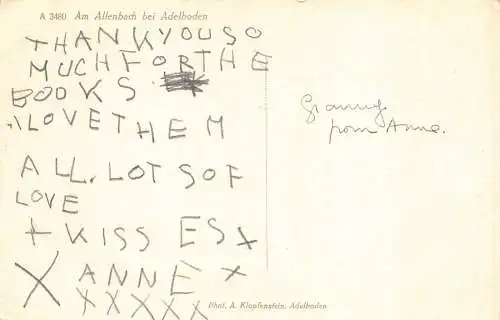 A 3480 Am Allenbach bei Adelboden
THANK YOU SO
MUCH FOR THE
BOOKS
I LOVE THEM
ALL. LOTS OF
LOVE
+ KISSES x
X ANNE x
X X X X X
Granny
from Anne.
Phot. A. Klopfenstein, Adelboden